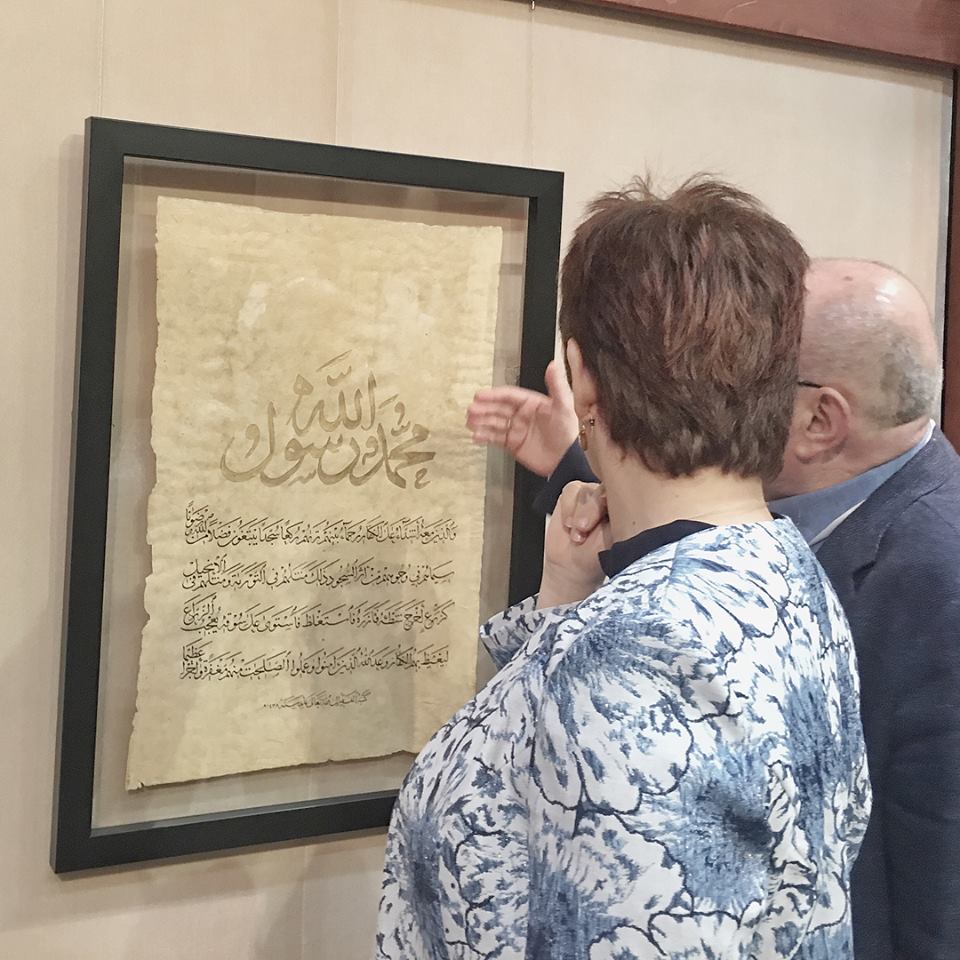 محمد رسول الله
والذين معه أشداء على الكفار رحماء بينهم تراهم ركعا سجدا يبتغون فضلا من الله ورضوانا
سيماهم في وجوههم من أثر السجود ذلك مثلهم في التورىة ومثلهم في الإنجيل
كزرع أخرج شطئه فآزره فاستغلظ فاستوى على سوقه يعجب الزراع
ليغيظ بهم الكفار وعد الله الذين آمنوا وعملوا الصلحت منهم مغفرة وأجرا عظيما